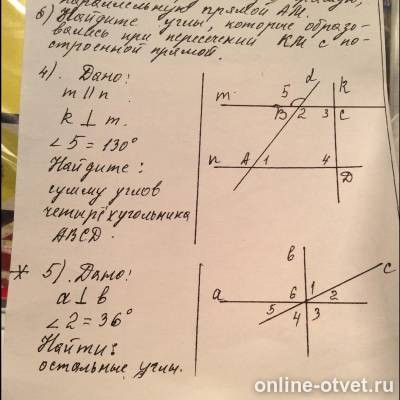 параллельную прямой AM.
б) Найдите углы, которые образо-
вались при пересечении KM с по-
строенной прямой.
4). Дано:
m || n
k ⊥ m.
∠5 = 130°
Найдите:
сумму углов
четырёхугольника
ABCD.
d
k
m
5
B
2
3
C
n
A
1
4
D
* 5). Дано:
a ⊥ b
∠2 = 36°
Найти:
остальные углы.
b
c
a
6
1
2
5
4
3
online-otvet.ru